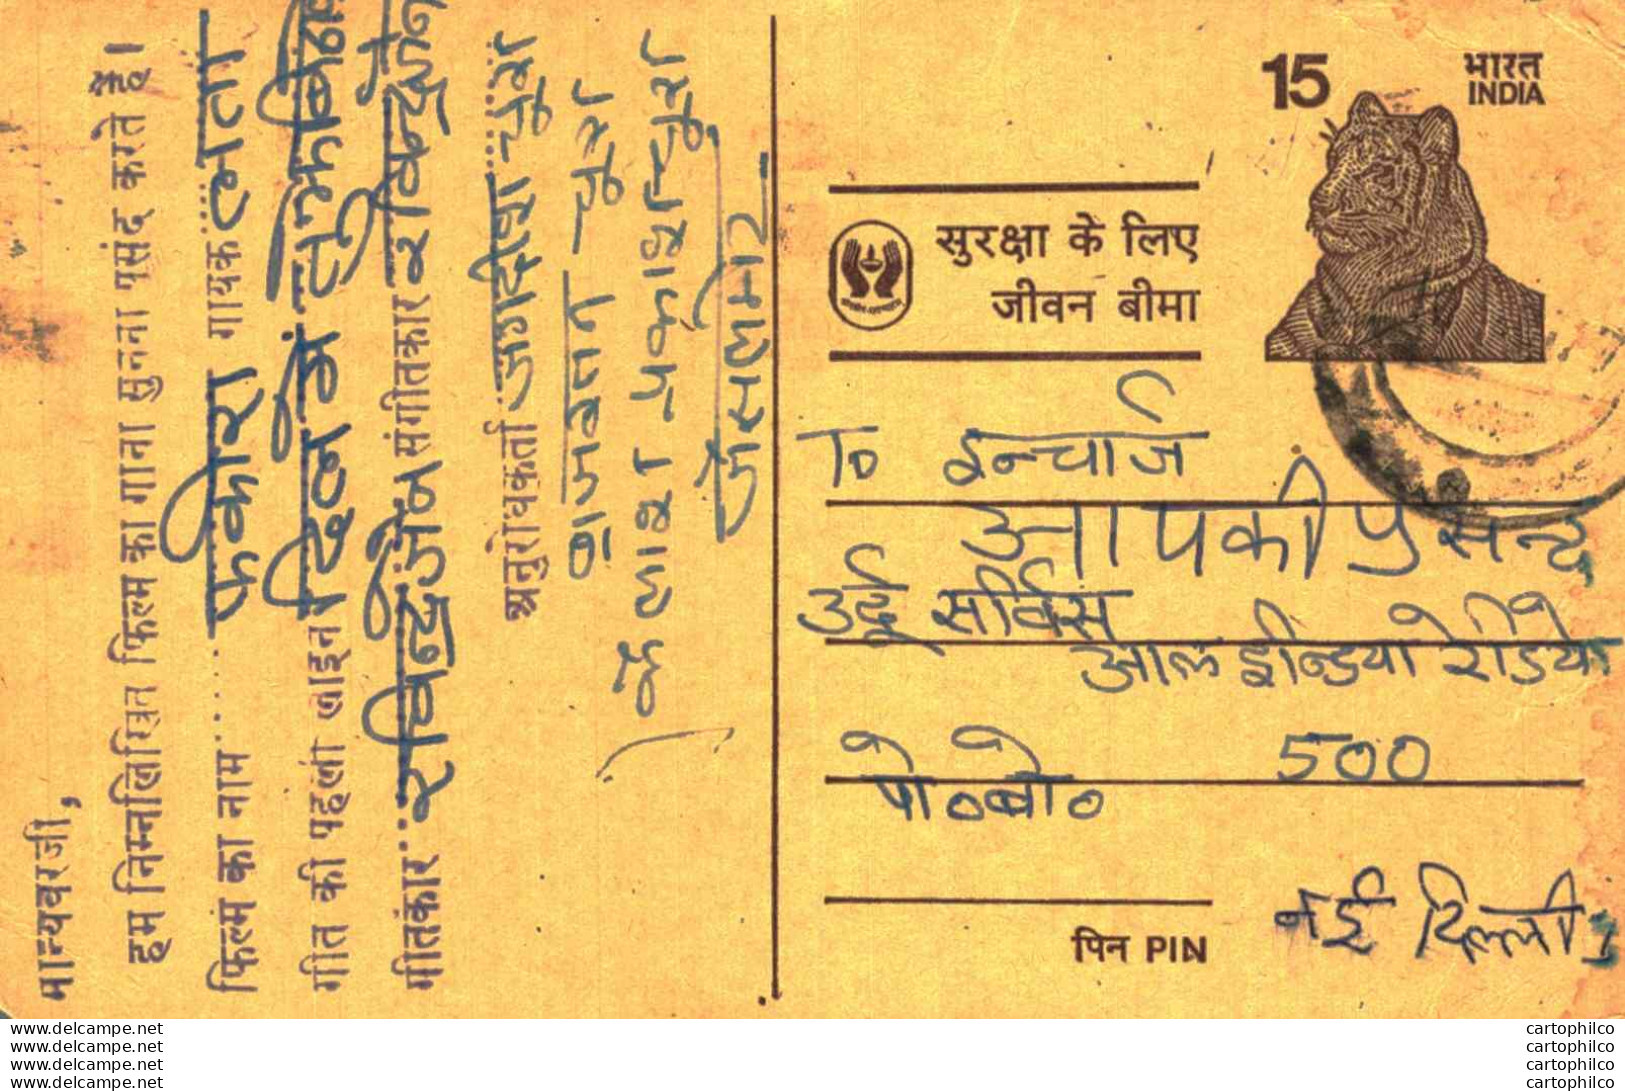 मान्यवरजी,
हम निम्नलिखित फिल्म का गाना सुनना पसंद करते हैं।
फिल्म का नाम फकीरा गायक लता
गीत की पहली लाइन दिल में तुझे बिठा
गीतकार रविन्द्र जैन संगीतकार रविन्द्र जैन
अनुरोधकर्ता जगदीश चूरा
चूरा
कैलाश प्रकाश चूरा
जैसलमेर
15
भारत
INDIA
सुरक्षा के लिए
जीवन बीमा
To इन्चार्ज
आपकी पसन्द
उर्दू सर्विस
आल इन्डिया रेडियो
पो०बो० 500
नई दिल्ली
पिन PIN
www.delcampe.net
www.delcampe.net
www.delcampe.net
www.delcampe.net
cartophilco
cartophilco
cartophilco
cartophilco